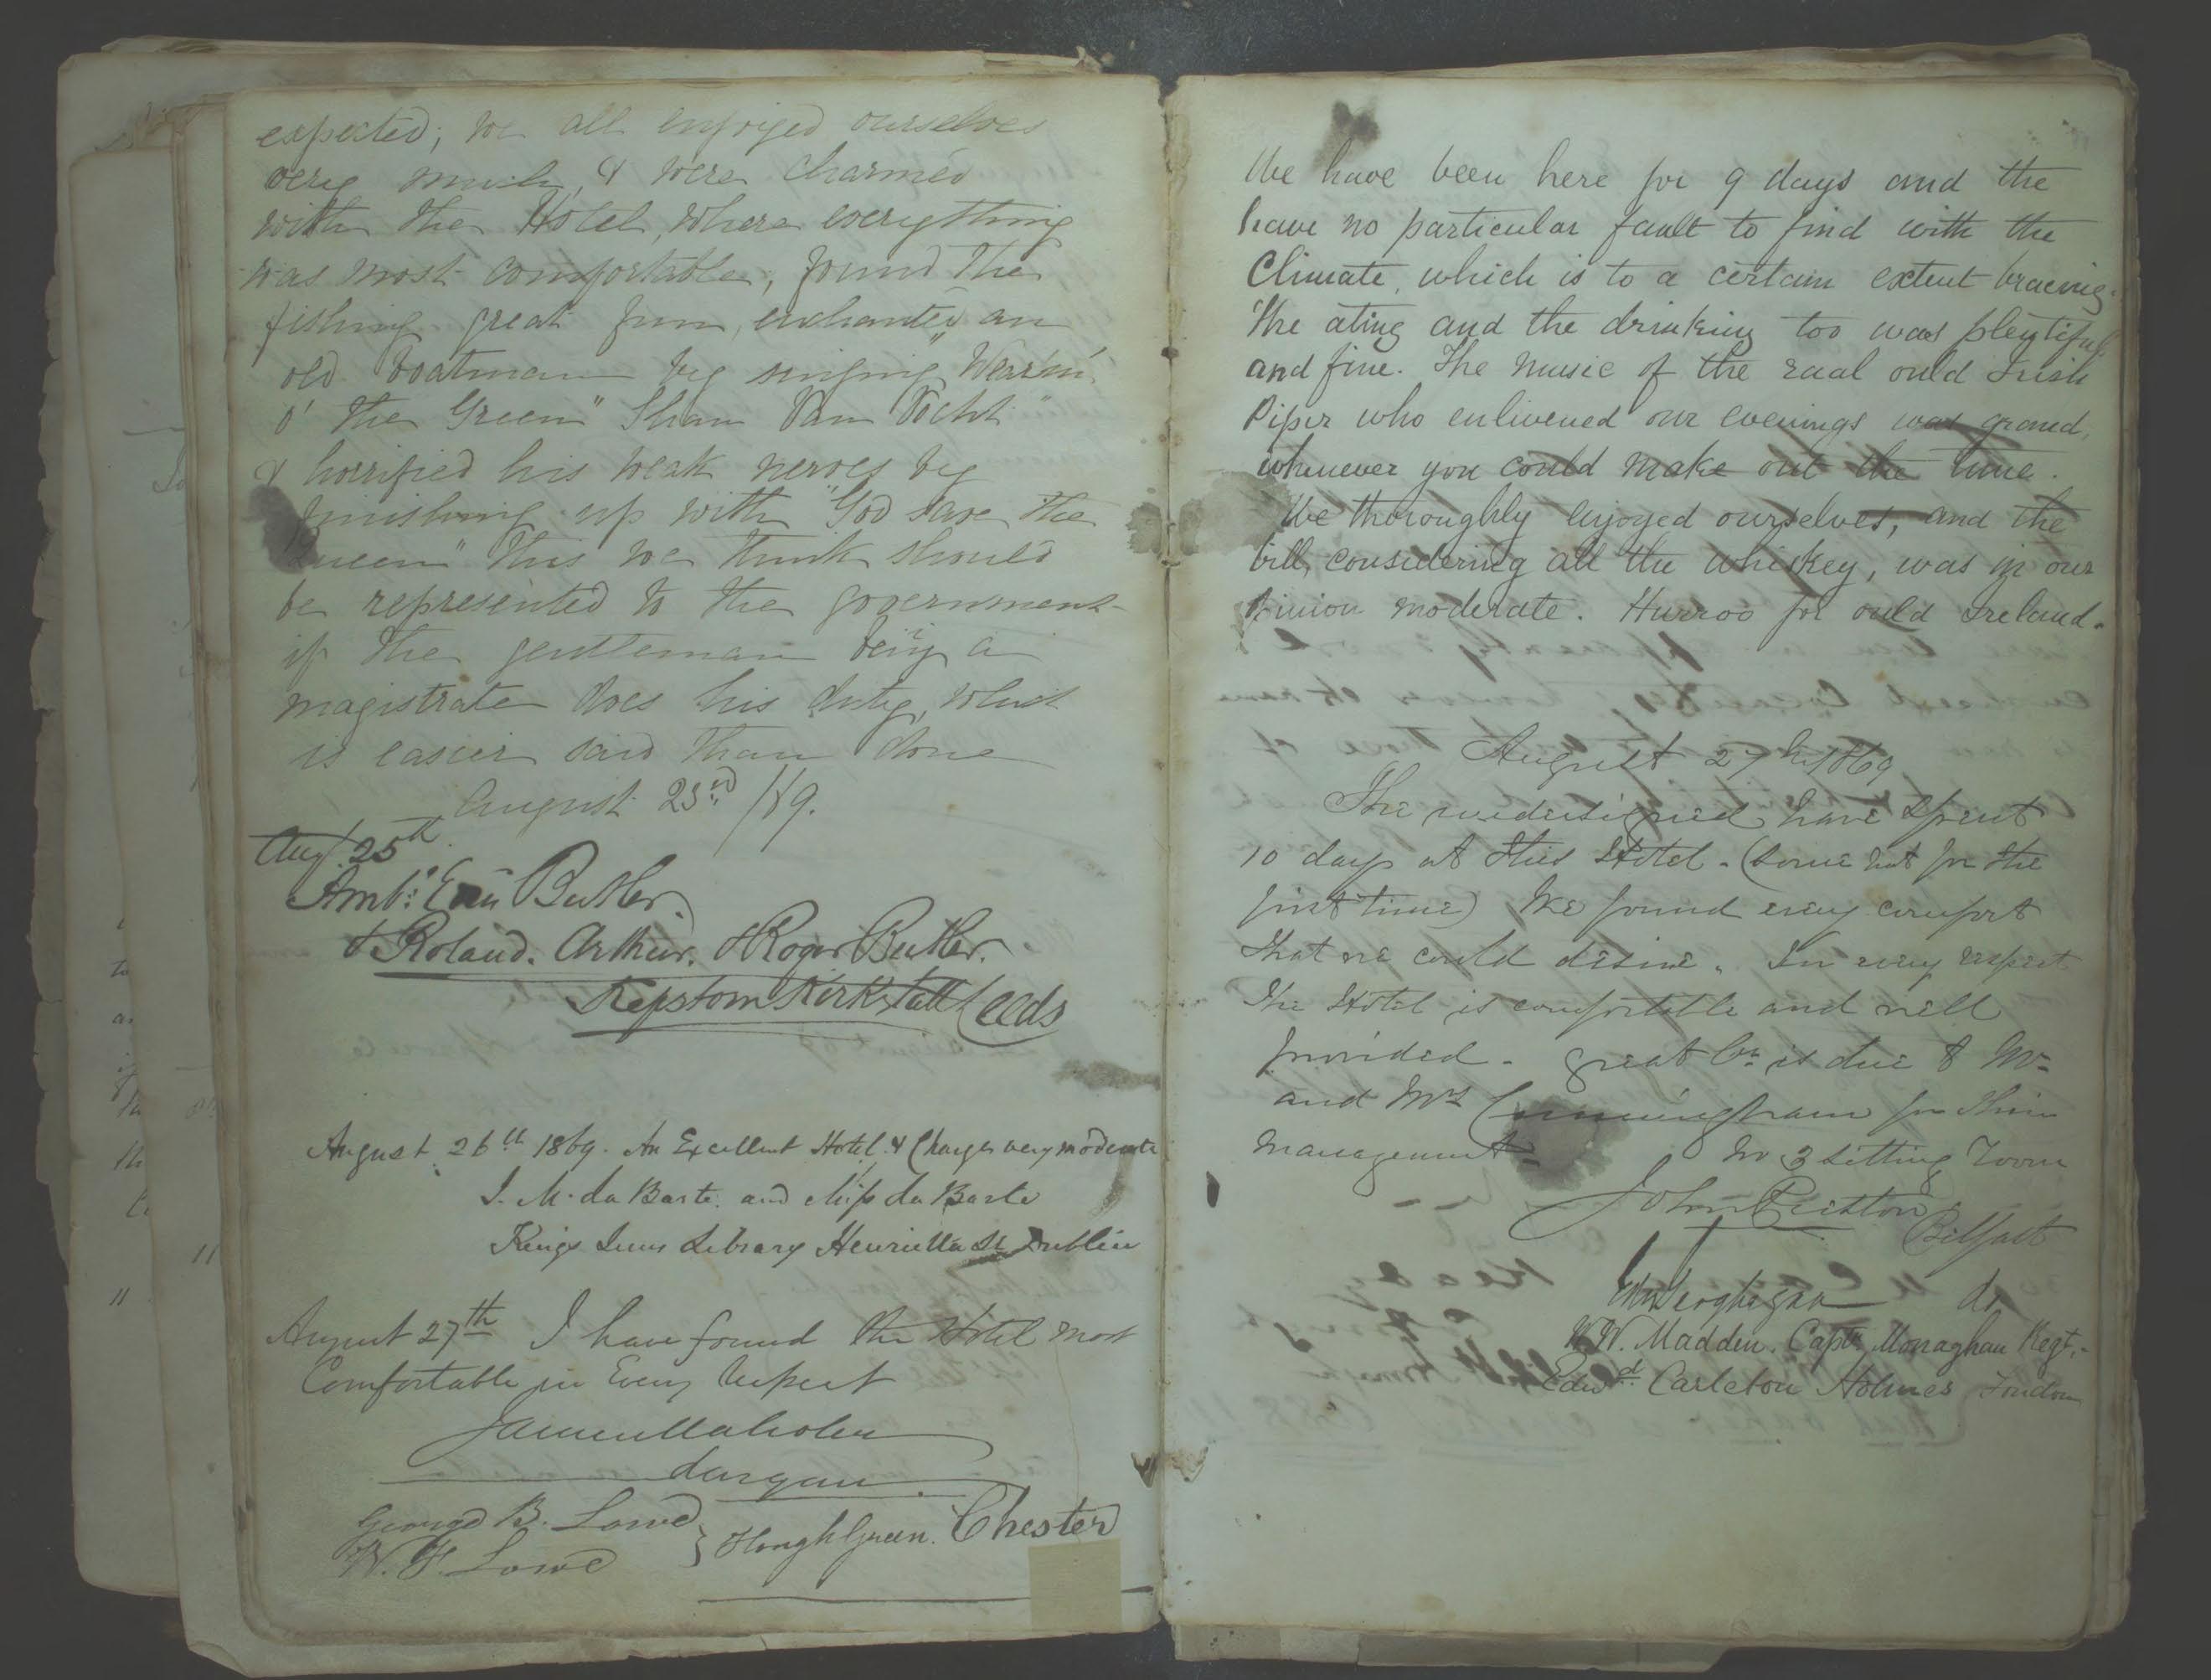 expected; we all enjoyed ourselves
very much, & were charmed
with the Hotel, where everything
was most comfortable, found the
fishing great fun, enchanted an
old boatman by singing "Wearin'
o' the Green" "Shan Van Vocht"
& horrified his weak nerves by
finishing up with "God save the
Queen" this we think should
be represented to the government
if the gentleman being a
magistrate does his duty, which
is easier said than done
August 23rd /69.
Aug 25th
Ambe Butler.
& Roland. Arthur. & Roger Butler.
Kepstorn Kirkstall Leeds
August 26th 1869. An Excellent Hotel & Charges very moderate
J. M. da Barte. and Miss da Barte
Kings Inns Library Henrietta St Dublin
August 27th I have found the Hotel most
Comfortable in Every Respect
James
George B. Lowe
W. F. Lowe } Hough Green. Chester
We have been here for 9 days and the
have no particular fault to find with the
Climate, which is to a certain extent bracing.
The ating and the drinking too was plentiful
and fine. The music of the raal ould Irish
Piper who enlivened our evenings was grand,
whenever you could make out the tune.
We thoroughly enjoyed ourselves, and the
bill, considering all the whiskey, was in our
pinion moderate. Hurroo for ould Ireland.
August 27th 1869
The undersigned have spent
10 days at this Hotel - (some not for the
first time) We found every comfort
that we could desire. In every respect
the Hotel is comfortable and well
provided - great Cr. is due to Mr
and Mrs Cunningham for their
management - No 3 Sitting Room
John
Belfast
do
W. W. Madden. Captn Monaghan Regt.
Edwd. Carleton Holmes London